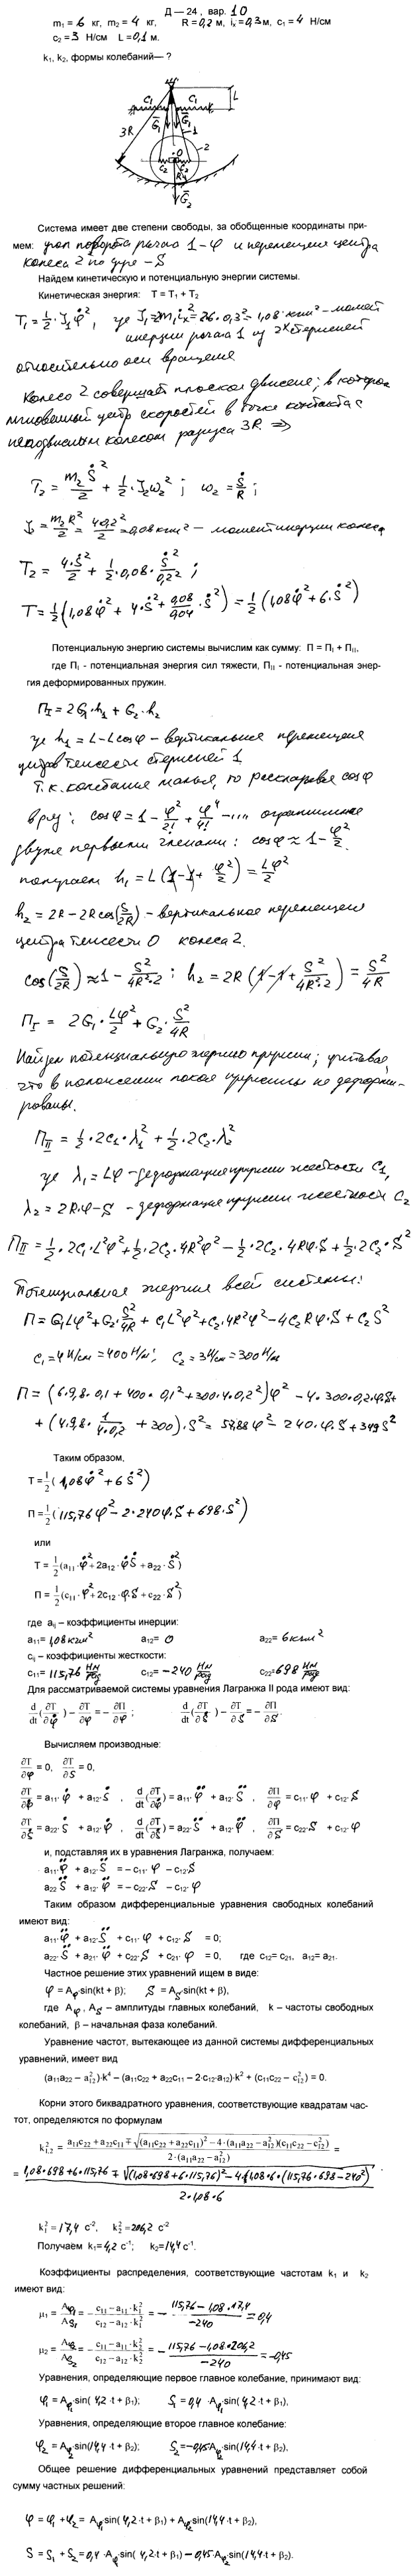 Д — 24 , вар. 10
m₁ = 6 кг, m₂ = 4 кг, R = 0,2 м, iₓ = 0,3 м, c₁ = 4 Н/см
c₂ = 3 Н/см L = 0,1 м.
k₁, k₂, формы колебаний— ?
C₁ C₁ L
G₁ G₁ 1
3R 2
O
C₂ C₂
R
G₂
Система имеет две степени свободы, за обобщенные координаты при-
мем: угол поворота рычага 1 - φ и перемещение центра
колеса 2 по дуге - S
Найдем кинетическую и потенциальную энергии системы.
Кинетическая энергия: T = T₁ + T₂
T₁ = 1/2 · J₁φ̇², где J₁ = 2m₁iₓ² = 2·6·0,3² = 1,08 кгм² - момент
инерции рычага 1 из 2ˣ стержней
относительно оси вращения
Колесо 2 совершает плоское движение, в котором
мгновенный центр скоростей в точке контакта с
неподвижным колесом радиуса 3R ⇒
T₂ = m₂Ṡ²/2 + 1/2 · J₂ω₂² ; ω₂ = Ṡ/R ;
J = m₂R²/2 = 4·0,2²/2 = 0,08 кгм² - момент инерции колеса
T₂ = 4·Ṡ²/2 + 1/2 · 0,08 · Ṡ²/0,2² ;
T = 1/2 (1,08φ̇² + 4·Ṡ² + 0,08/0,04 · Ṡ²) = 1/2 (1,08φ̇² + 6·Ṡ²)
Потенциальную энергию системы вычислим как сумму: П = П_I + П_II,
где П_I - потенциальная энергия сил тяжести, П_II - потенциальная энер-
гия деформированных пружин.
П_I = 2G₁·h₁ + G₂·h₂
где h₁ = L - Lcosφ - вертикальное перемещение
центров тяжести стержней 1
Т.к. колебания малые, то раскладывая cosφ
в ряд: cosφ = 1 - φ²/2! + φ⁴/4! - ... ограничимся
двумя первыми членами: cosφ ≈ 1 - φ²/2.
получаем h₁ = L(1 - 1 + φ²/2) = Lφ²/2
h₂ = 2R - 2Rcos(S/2R) - вертикальное перемещение
центра тяжести O колеса 2.
cos(S/2R) ≈ 1 - S²/4R²·2 ; h₂ = 2R(1 - 1 + S²/4R²·2) = S²/4R
П_I = 2G₁ · Lφ²/2 + G₂ · S²/4R
Найдем потенциальную энергию пружин, учитывая,
что в положении покоя пружины не деформи-
рованы.
П_II = 1/2 · 2c₁ · λ₁² + 1/2 · 2c₂ · λ₂²
где λ₁ = Lφ - деформация пружин жесткости C₁,
λ₂ = 2R·φ - S - деформация пружин жесткости C₂
П_II = 1/2 · 2c₁ · L²φ² + 1/2 · 2c₂ · 4R²φ² - 1/2 · 2c₂ · 4Rφ·S + 1/2 · 2c₂ · S²
Потенциальная энергия всей системы:
П = G₁Lφ² + G₂ · S²/4R + c₁L²φ² + c₂·4R²φ² - 4c₂Rφ·S + c₂S²
c₁ = 4 Н/см = 400 Н/м; c₂ = 3 Н/см = 300 Н/м
П = (6·9,8·0,1 + 400·0,1² + 300·4·0,2²)φ² - 4·300·0,2·φ·S +
+ (4·9,8 · 1/4·0,2 + 300)·S² = 57,88φ² - 240·φ·S + 349S²
Таким образом,
T = 1/2 (1,08φ̇² + 6Ṡ²)
П = 1/2 (115,76φ² - 2·240φ·S + 698·S²)
или
T = 1/2 (a₁₁·φ̇² + 2a₁₂·φ̇Ṡ + a₂₂·Ṡ²)
П = 1/2 (c₁₁·φ² + 2c₁₂·φ·S + c₂₂·S²)
где aᵢⱼ – коэффициенты инерции:
a₁₁ = 1,08 кгм² a₁₂ = 0 a₂₂ = 6 кгм²
cᵢⱼ – коэффициенты жесткости:
c₁₁ = 115,76 Нм/рад c₁₂ = -240 Нм/рад c₂₂ = 698 Нм/рад
Для рассматриваемой системы уравнения Лагранжа II рода имеют вид:
d/dt(∂T/∂φ̇) - ∂T/∂φ = - ∂П/∂φ ; d/dt(∂T/∂Ṡ) - ∂T/∂S = - ∂П/∂S.
Вычисляем производные:
∂T/∂φ = 0, ∂T/∂S = 0,
∂T/∂φ̇ = a₁₁·φ̇ + a₁₂·Ṡ , d/dt(∂T/∂φ̇) = a₁₁·φ̈ + a₁₂·S̈ , ∂П/∂φ = c₁₁·φ + c₁₂·S
∂T/∂Ṡ = a₂₂·Ṡ + a₁₂·φ̇ , d/dt(∂T/∂Ṡ) = a₂₂·S̈ + a₁₂·φ̈ , ∂П/∂S = c₂₂·S + c₁₂·φ
и, подставляя их в уравнения Лагранжа, получаем:
a₁₁·φ̈ + a₁₂·S̈ = – c₁₁·φ – c₁₂·S
a₂₂·S̈ + a₁₂·φ̈ = – c₂₂·S – c₁₂·φ
Таким образом дифференциальные уравнения свободных колебаний
имеют вид:
a₁₁·φ̈ + a₁₂·S̈ + c₁₁·φ + c₁₂·S = 0;
a₂₂·S̈ + a₂₁·φ̈ + c₂₂·S + c₂₁·φ = 0, где c₁₂= c₂₁, a₁₂= a₂₁.
Частное решение этих уравнений ищем в виде:
φ = A_φ·sin(kt + β); S = A_S·sin(kt + β),
где A_φ , A_S – амплитуды главных колебаний, k – частоты свободных
колебаний, β – начальная фаза колебаний.
Уравнение частот, вытекающее из данной системы дифференциальных
уравнений, имеет вид
(a₁₁a₂₂ – a₁₂²)·k⁴ – (a₁₁c₂₂ + a₂₂c₁₁ – 2·c₁₂·a₁₂)·k² + (c₁₁c₂₂ – c₁₂²) = 0.
Корни этого биквадратного уравнения, соответствующие квадратам час-
тот, определяются по формулам
k²₁,₂ = a₁₁c₂₂ + a₂₂c₁₁ ∓ √(a₁₁c₂₂ + a₂₂c₁₁)² – 4·(a₁₁a₂₂ – a₁₂²)(c₁₁c₂₂ – c₁₂²) / 2·(a₁₁a₂₂ – a₁₂²) =
= 1,08·698 + 6·115,76 ∓ √(1,08·698 + 6·115,76)² - 4·(1,08·6·(115,76·698 - 240²) / 2·1,08·6
k₁² = 17,4 с⁻², k₂² = 206,2 с⁻²
Получаем k₁ = 4,2 с⁻¹; k₂ = 14,4 с⁻¹.
Коэффициенты распределения, соответствующие частотам k₁ и k₂
имеют вид:
μ₁ = A_φ₁/A_S₁ = – c₁₁ – a₁₁·k₁² / c₁₂ – a₁₂·k₁² = - 115,76 - 1,08·17,4 / -240 = 0,4
μ₂ = A_φ₂/A_S₂ = – c₁₁ – a₁₁·k₂² / c₁₂ – a₁₂·k₂² = - 115,76 - 1,08·206,2 / -240 = -0,45
Уравнения, определяющие первое главное колебание, принимают вид:
φ₁ = A_φ₁·sin( 4,2 ·t + β₁); S₁ = 0,4 ·A_φ₁·sin( 4,2 ·t + β₁),
Уравнения, определяющие второе главное колебание:
φ₂ = A_φ₂·sin(14,4 ·t + β₂); S₂ = -0,45A_φ₂·sin(14,4 ·t + β₂),
Общее решение дифференциальных уравнений представляет собой
сумму частных решений:
φ = φ₁ + φ₂ = A_φ₁·sin( 4,2 ·t + β₁) + A_φ₂·sin(14,4 ·t + β₂),
S = S₁ + S₂ = 0,4 ·A_φ₁·sin( 4,2 ·t + β₁) - 0,45·A_φ₂·sin(14,4·t + β₂).